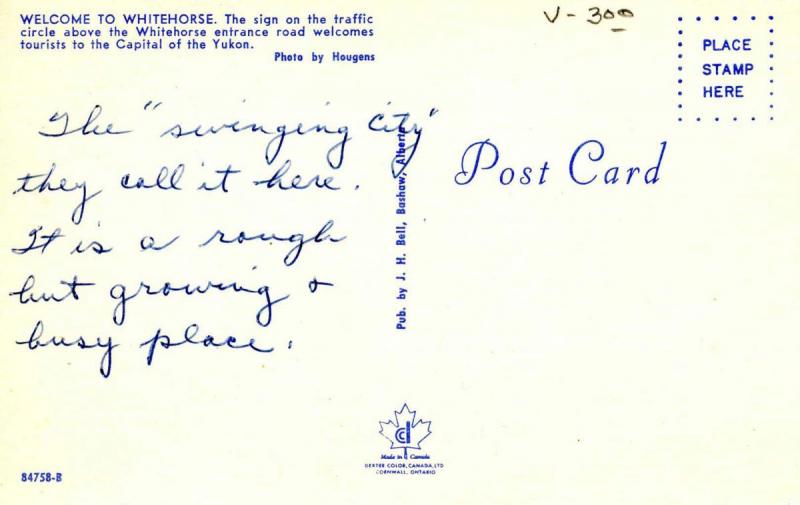 WELCOME TO WHITEHORSE. The sign on the traffic
circle above the Whitehorse entrance road welcomes
tourists to the Capital of the Yukon.
Photo by Hougens
V-300
PLACE
STAMP
HERE
The "swinging City"
they call it here.
It is a rough
but growing &
busy place.
Pub. by J. H. Bell, Bashaw, Alberta
Post Card
Made in Canada
DEXTER COLOR, CANADA, LTD
CORNWALL, ONTARIO
84758-B